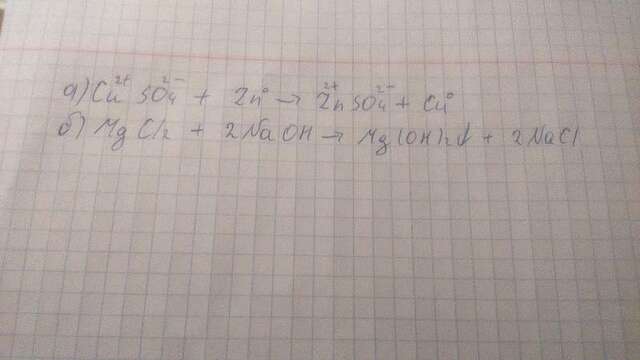 а) Cu²⁺SO₄²⁻ + Zn⁰ → Zn²⁺SO₄²⁻ + Cu⁰
б) MgCl₂ + 2NaOH → Mg(OH)₂↓ + 2NaCl